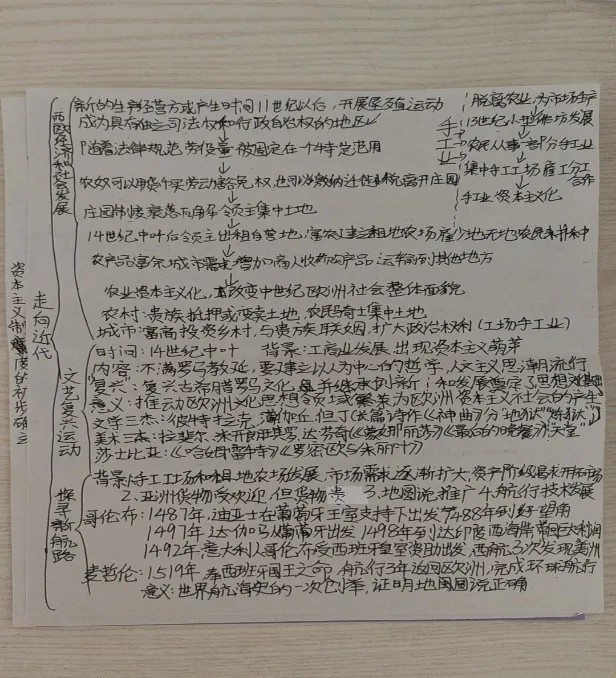 资本主义制度的初步确立
走向近代
西欧经济和社会发展
新的生产经营方式产生时间11世纪以后，开展垦殖运动
成为具有独立司法权和行政自治权的地区
随着法律规范 劳役量被固定在一个特定范围
农奴可以用货币买劳动豁免权,也可以缴纳迁徙税离开庄园
庄园制度衰落瓦解 领主集中土地
14世纪中叶后领主出租自营地,富农建立租地农场雇少地无地农民来耕种
农产品富余 城市需求增加 商人收购农产品 运输到其他地方
农业资本主义化,改变中世纪欧洲社会整体面貌
农村:贵族抢押或买卖土地,农民骑士集中土地
城市:富商投资乡村,与贵族联姻,扩大政治权利(工场手工业)
手工业
脱离农业,为市场生产
13世纪小型作坊发展
农民从事一部分手工业
集中手工工场 雇工分工合作
手工业资本主义化
文艺复兴运动
时间:14世纪中叶 背景:工商业发展,出现资本主义萌芽
内容:不满罗马教廷,要建立以人为中心的哲学,人文主义思潮流行
"复兴":复兴古希腊罗马文化,并继承创新;和发展奠定了思想基础
意义:推动欧洲文化思想领域繁荣为欧洲资本主义社会的产生
文学三杰:彼特拉克,薄伽丘,但丁(长篇诗作《神曲》分"地狱""炼狱""天堂"
美术三杰:拉斐尔,米开朗琪罗,达芬奇《蒙娜丽莎》《最后的晚餐》
莎士比亚:《哈姆雷特》《罗密欧与朱丽叶》
探寻新航路
背景1.手工工场和租地农场发展,市场需求逐渐扩大,资产阶级渴求开拓市场
2.亚洲货物受欢迎,但货物贵 3.地圆说推广 4.航行技术发展
哥伦布:1487年,迪亚士在葡萄牙王室支持下出发 1488年到好望角
1497年 达·伽马从葡萄牙出发 1498年到达印度西海岸带回巨大利润
1492年 意大利人哥伦布受西班牙皇室资助出发,西航3次发现美洲
麦哲伦:1519年,奉西班牙国王之命,航行3年返回欧洲,完成环球航行
意义:世界航海史的一次创举,证明地圆说正确